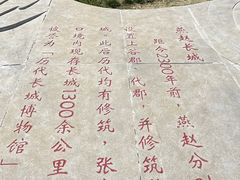 燕赵长城
距今2300年前，燕赵分
设置上谷郡、代郡，并修筑
城。此后历代均有修筑，张
口境内现存长城1300余公里
被誉为“历代长城博物馆”